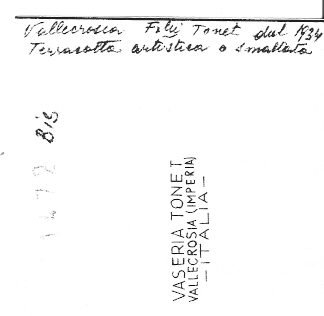 Vallecrosia F.lli Tonet dal 1934
Terracotta artistica o smaltata
Bis
VASERIA TONET
VALLECROSIA (IMPERIA)
– ITALIA –